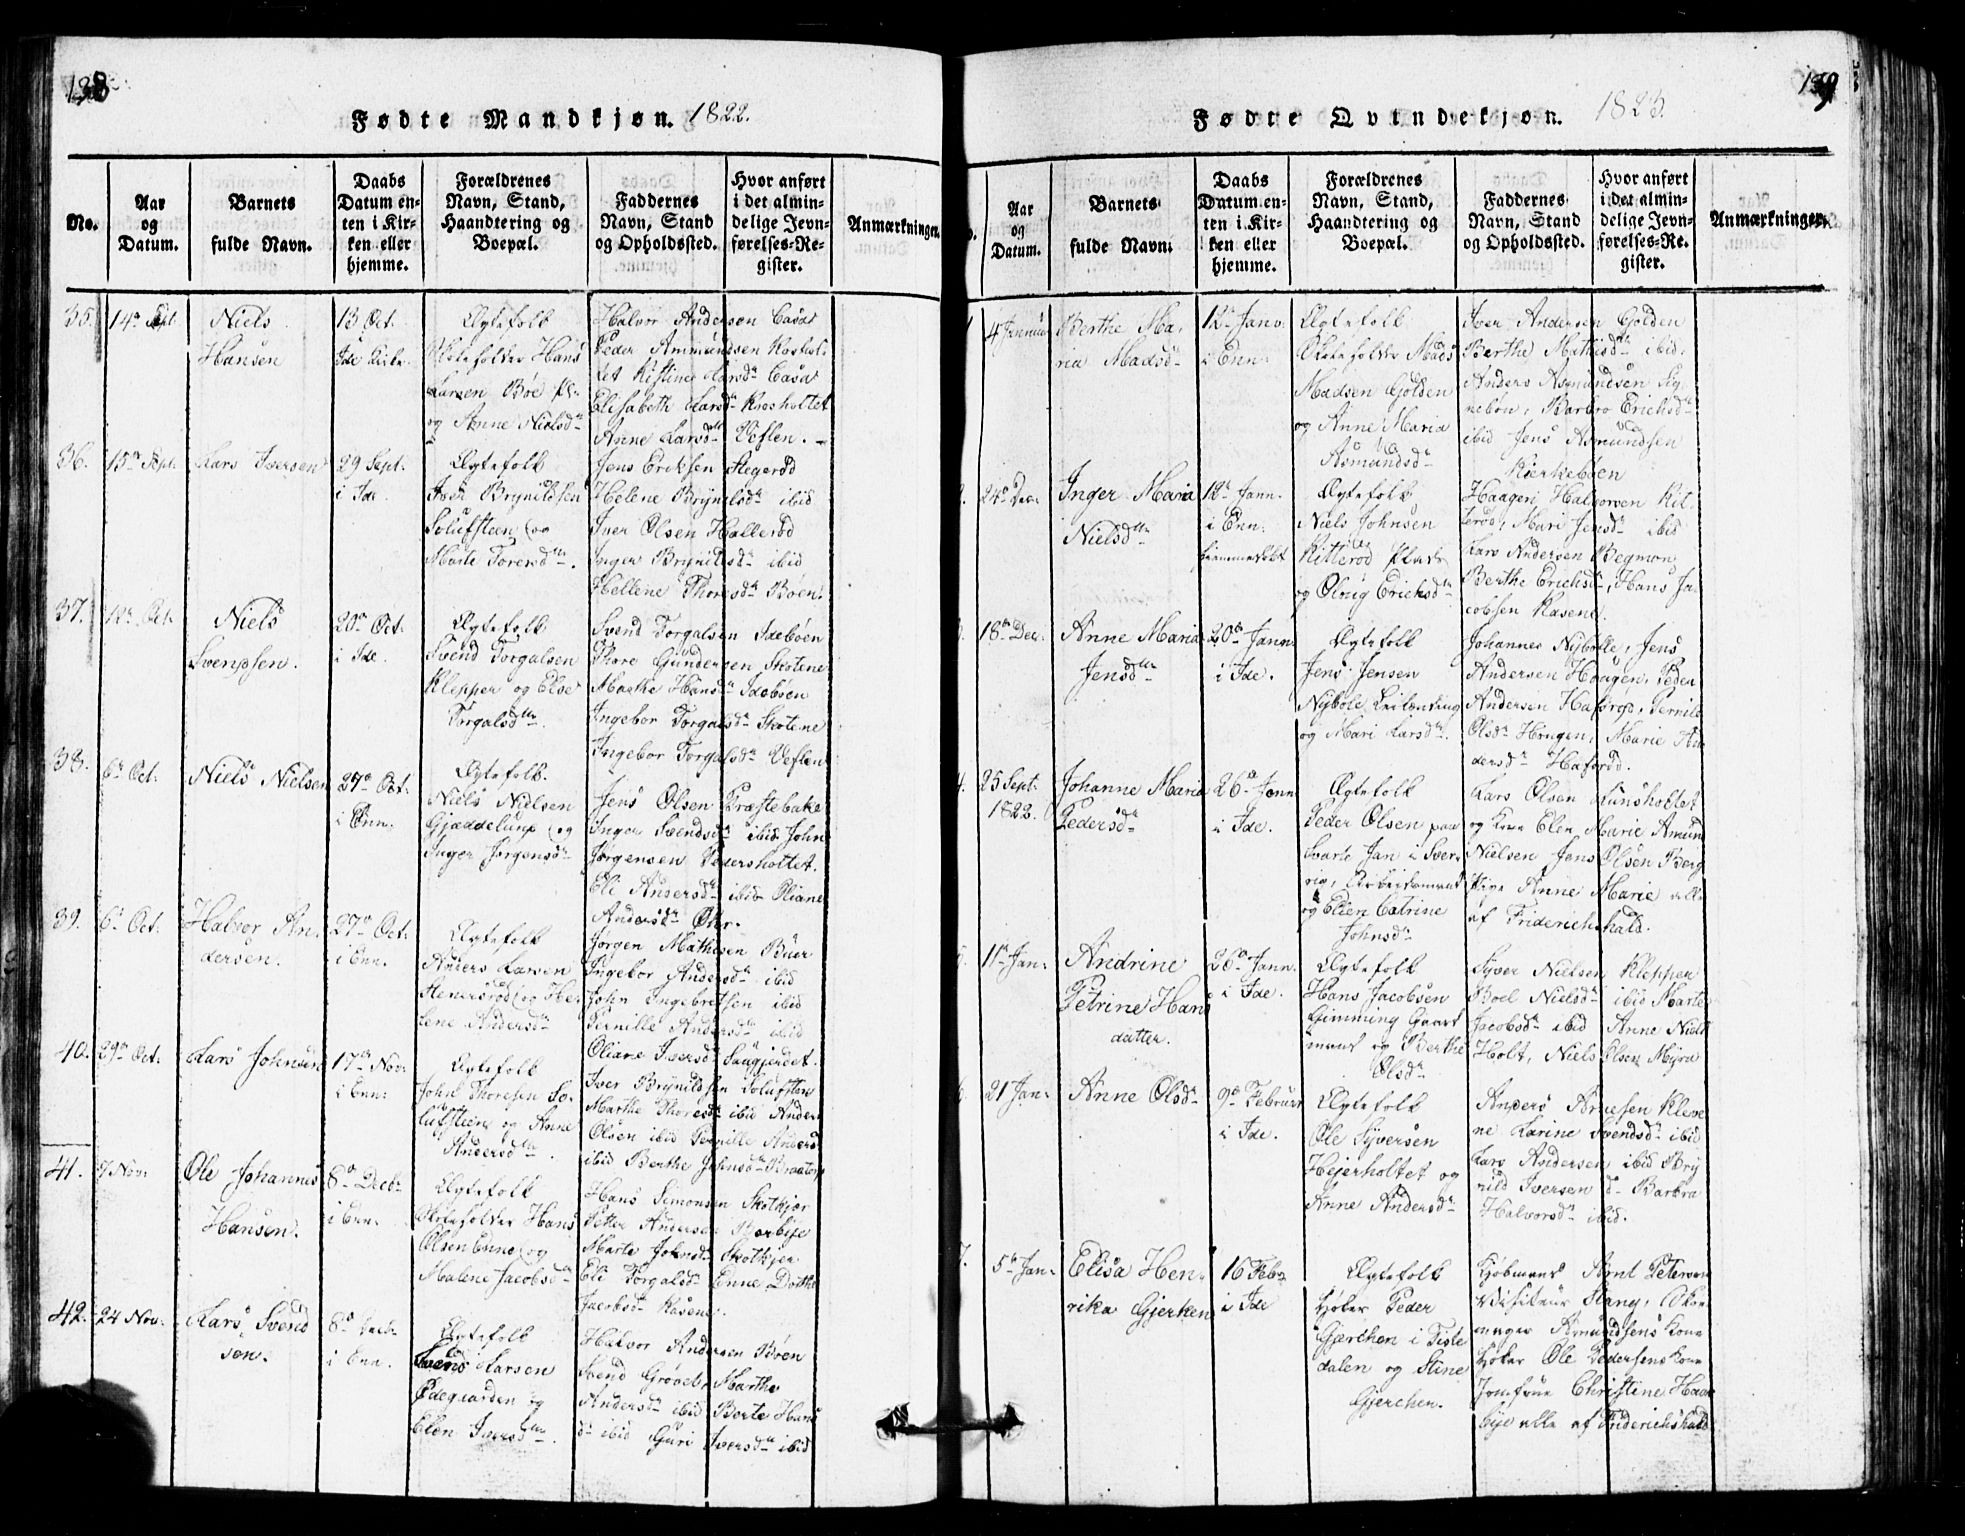 138
Fødte Mandkjøn. 1822.
No.
Aar
og
Datum.
Barnets
fulde Navn.
Daabs
Datum en-
ten i Kir-
ken eller
hjemme.
Forældrenes
Navn, Stand,
Haandtering og
Boepæl.
Faddernes
Navn, Stand
og Opholdssted.
Hvor anført
i det almin-
delige Jevn-
førelses-Re-
gister.
Anmærkninger.
35.
14de Sept.
Niels
Hansen
13 Oct.
Ide Kirke.
Ægtefolk
Hans
Larsen Böe
og Anne Nielsd.
Halvor Andersen
Peder Ammundsen Kroshol-
tet Kistine Larsd.
Elisabeth Larsd. Krosholtet
Anne Larsd. Veflen.
36.
15de Sept.
Lars Iversen
29 Sept.
i Ide.
Ægtefolk
Iver Brynildsen
Solufsteen og
Marte Toresd.
Jens Eriksen Stegeröd
Helene Brynilsd. ibid
Iver Olsen Halleröd
Inger Brynildsd. ibid
Hellene Thoresd. Böen.
37.
12te Oct.
Niels
Svendsen.
20de Oct.
i Ide.
Ægtefolk
Svend Torgalsen
Klepper og Else
Torgalsd.
Svend Torgalsen Idebøen
Thore Gundersen Skotene
Marthe Hansd. Idebøen
Ingebor Torgalsd. Skotene
Ingebor Torgalsd. Veflen
38.
6te Oct.
Niels Nielsen
27de Oct.
i Enn.
Ægtefolk.
Niels Nielsen
Gjæddelund og
Inger Jørgensd.
Jens Olsen Præstebake
Inger Svendsd. ibid John
Jørgensen Pedersholtet.
Eli Andersd. ibid Oliane
Andersd.
39.
6te Oct.
Halvor An-
dersen.
27de Oct.
i Enn.
Ægtefolk
Anders Larsen
Stenersröd og He-
lene Andersd.
Jørgen Mathisen Buer
Ingebor Andersd. ibid
John Ingebretsen ibid
Pernille Andersd. ibid
Oliane Iversd. Saugjerdet.
40.
29de Oct.
Lars Johnsen
17de Nov.
i Enn.
Ægtefolk
John Thoresen So-
lufsteen og Anne
Andersd.
Iver Brynildsen Solufsten
Marthe Thoresd. ibid Anders
Olsen ibid Pernille Andersd
ibid Berthe Johnsd.
41.
7 Nov.
Ole Johannes
Hansen.
8de Decb.
i Enn.
Ægtefolk
Hans
Olsen Enne og
Malene Jacobsd.
Hans Simonsen Skotkjær
Petter Andersen
Marte Johnsd. Skotkjær
Eli Torgalsd. Enne Dorthe
Jacobsd. Kasene.
42.
24 Nov.
Lars Svend
sen.
8de Decb.
i Enn.
Ægtefolk
Svend Larsen
Ödegaarden og
Elen Iversd.
Halvor Andersen Böen
Svend Marthe
Andersd. ibid Berte Hans
d. ibid Guri Iversd. ibid
139
Fødte Qvindekjøn. 1823.
Aar
og
Datum.
Barnets
fulde Navn.
Daabs
Datum en-
ten i Kir-
ken eller
hjemme.
Forældrenes
Navn, Stand,
Haandtering og
Boepæl.
Faddernes
Navn, Stand
og Opholdssted.
Hvor anført
i det almin-
delige Jevn-
førelses-Re-
gister.
Anmærkninger.
4 Januar
Berthe Ma-
ria Madsd.
12te Janv.
i Enn.
Ægtefolk
Mads
Madsen Golden
og Anne Maria
Asmundsd.
Iver Andersen Golden
Berthe Mathisd. ibid.
Anders Asmundsen Sig-
nebøn, Barbro Erichsd.
ibid Jens Asmundsen
Kierkebøen
24de Dec.
Inger Maria
Nielsd.
12te Jann.
i Enn.
hiemmedøbt
Ægtefolk
Niels Johnsen
Kitteröd Plads
og Oloug Erichsd.
Haagen Halvorsen Kit-
teröd, Mari Jensd. ibid
Lars Andersen Begmon,
Berthe Erichsd., Hans Ja-
cobsen Kasene.
18de Dec.
Anne Maria
Jensd.
20de Jann.
i Ide.
Ægtefolk
Jens Jensen
Nyböle Leilænding
og Mari Larsd.
Johannes Nybölle, Jens
Andersen Hougen, Peder
Andersen Haforød, Pernille
Olsd. Hougen, Marie An-
dersd. Haforød.
25 Sept.
1822.
Johanne Marie
Pedersd.
26de Jann
i Ide.
Ægtefolk
Peder Olsen paa
Svarte Jan i Sver-
rig, Arbeidsmand
og Elen Catrine
Johnsd.
Lars Olsen Lunsholtet
og Kone Elen Marie Amund
Nielsen Jens Olsen Berg
Pige Anne Marie alle
af Friderichshald.
11te Jan.
Andrine
Petrine Hans
datter.
26de Jann.
i Ide.
Ægtefolk
Hans Jacobsen
Gimming Gaard
mand og Berthe
Olsd.
Syver Nielsen Klepper
Boel Nielsd. ibid Marte
Jacobsd. ibid Anne Niels
Holt, Niels Olsen Myra
21 Jan.
Anne Olsd.
9de Februar
i Ide.
Ægtefolk
Ole Syversen
Hejerholtet og
Anne Andersd.
Anders Arnesen Klene
ne Karine Svendsd. ibid
Lars Andersen ibid Bry
nild Iversen d. Barbra
Halvorsd. ibid.
7.
5te Jan.
Elisa Hen-
rika Gjerken
16 Febr.
i Ide
Ægtefolk
Høker Peder
Gjerchen i Tiste
dalen og Stine
Gjerchen.
Kjøbmand Arnt Petersen
Visiteur Stang, Skoe
mager Amundsens Kone
Høker Ole Pedersens Kone
Jomfrue Christine Haa
bye alle af Friderichshald